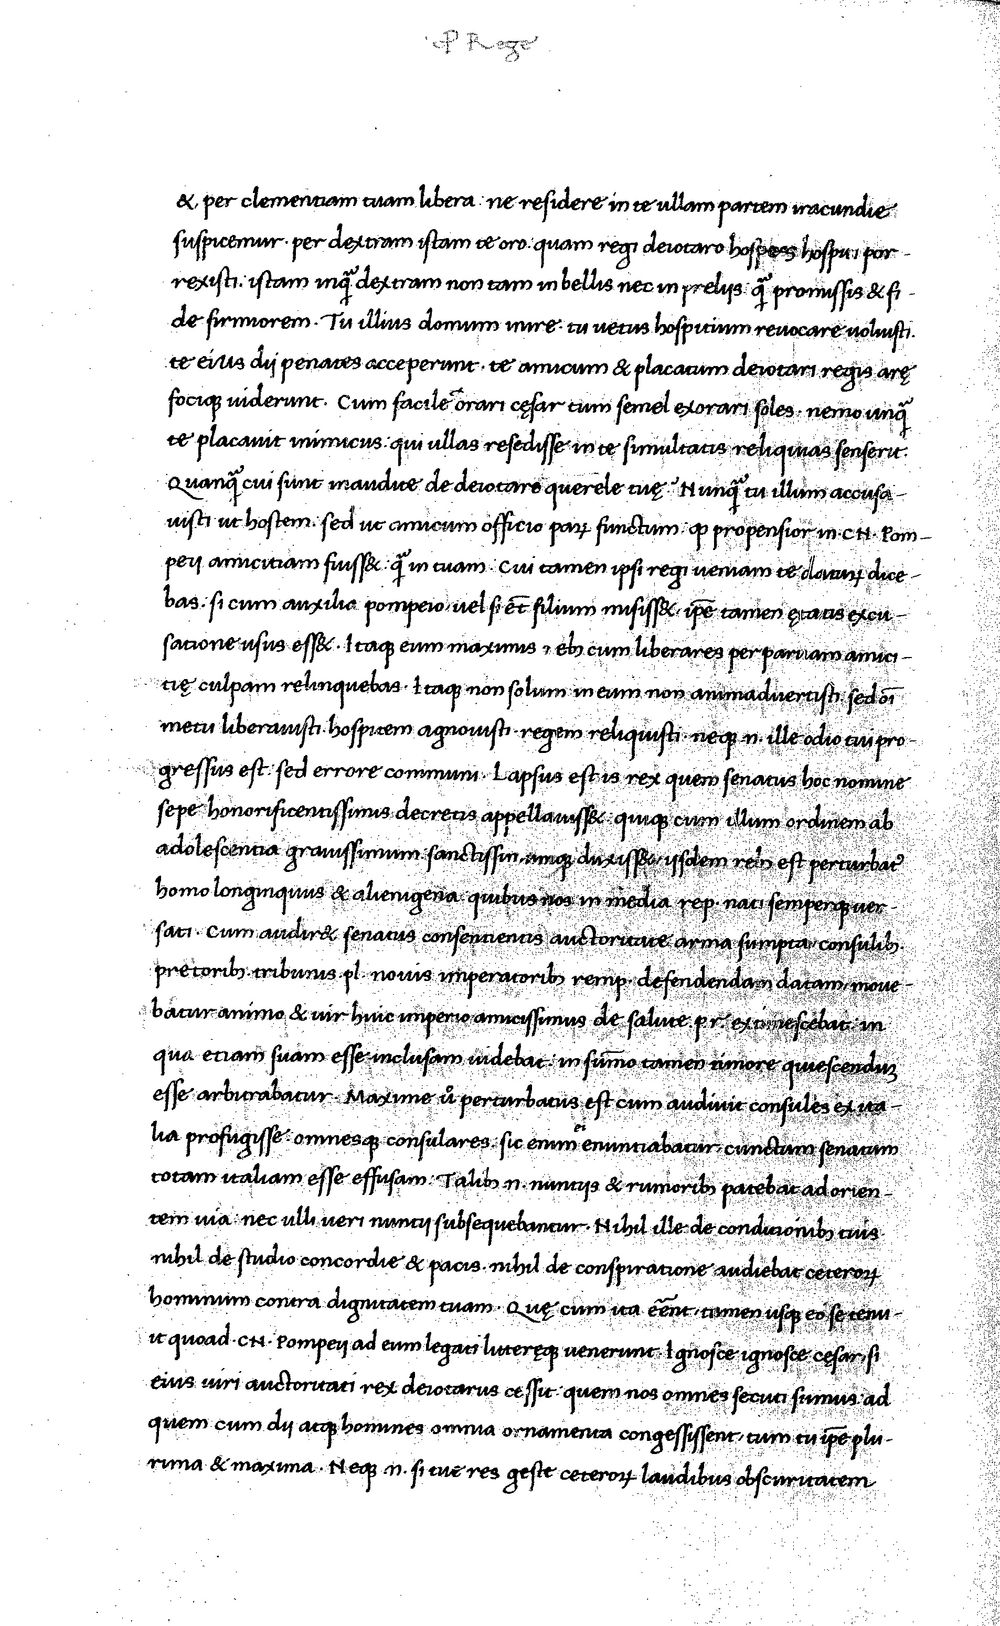 ·ꝓ Rege
&, per clementiam tuam libera· ne residere in te ullam partem iracundie
suspicemur· per dextram istam te oro· quam regi deiotaro hospes hospiti por-
rexisti· istam inqȝ̃ dextram non tam in bellis nec in prelijs· qȝ̃ promissis & fi-
de firmiorem· Tu illius domum inire· tu uetus hospitium reuocare uoluisti·
te eius dij penates acceperunt· te amicum & placatum deiotari regis arę
fociqȝ uiderunt· Cum facile orari cęsar tum semel exorari soles· nemo unqȝ̃
te placauit inimicus· qui ullas resedisse in te simultatis reliquias senserit·
Quanqȝ̃ cui sunt inaudite de deiotaro querele tuę· Nunqȝ̃ tu illum accusa-
uisti ut hostem· sed ut amicum officio paꝝ functum· ꝙ propensior in·CN·Pom-
peij amicitiam fuiss&· qȝ̃ in tuam· Cui tamen ipsi regi ueniam te daturꝝ dice-
bas· si cum auxilia pompeio, uel si et̃ filium misiss&· ip̃e tamen ętatis excu-
satione usus ess&· Itaqȝ eum maximis reb; cum liberares perparuam amici-
tię culpam relinquebas· Itaqȝ non solum in eum non animaduertisti· sed oĩ
metu liberauisti· hospitem agnouisti· regem reliquisti· neqȝ n· ille odio tui pro-
gressus est· sed errore communi· Lapsus est is rex quem senatus hoc nomine
sepe honorificentissimis decretis appellauiss&· quiqȝ cum illum ordinem ab
adolescentia grauissimum sanctissimumqȝ duxiss&· ijsdem reb; est perturbat᷒
homo longinquus & alienigena· quibus nos in media rep· nati semperqȝ uer-
sati· Cum audir& senatus consentientis auctoritate arma sumpta· consulib;
pretorib; tribunis pl· nouis imperatorib; remp· defendendam datam· moue-
batur animo & uir huic imperio amicissimus de salute p·r· extimescebat· in
qua etiam suam esse inclusam uidebat· in sum̃o tamen timore quiescenduȝ
esse arbitrabatur· Maxime ů perturbatus est cum audiuit consules ex ita-
lia profugisse· omnesqȝ consulares· sic enim ei enuntiabatur· cunctum senatum
totam italiam esse effusam· Talib; n· nuntijs & rumorib; patebat ad orien-
tem uia· nec ulli ueri nuntij subsequebantur· Nihil ille de conditionib; tuis
nihil de studio concordie & pacis· nihil de conspiratione audiebat ceteroꝝ
hominum contra dignitatem tuam· Quę cum ita eẽnt· tamen usqȝ eo se tenu-
it quoad·CN·Pompeij ad eum legati litteręqȝ uenerunt· Ignosce ignosce cęsar, si
eius uiri auctoritati rex deiotarus cessit· quem nos omnes secuti sumus· ad
quem cum dij atqȝ homines omnia ornamenta congessissent· tum tu ip̃e plu-
rima & maxima· Neqȝ n· si tue res geste ceteroꝝ laudibus obscuritatem